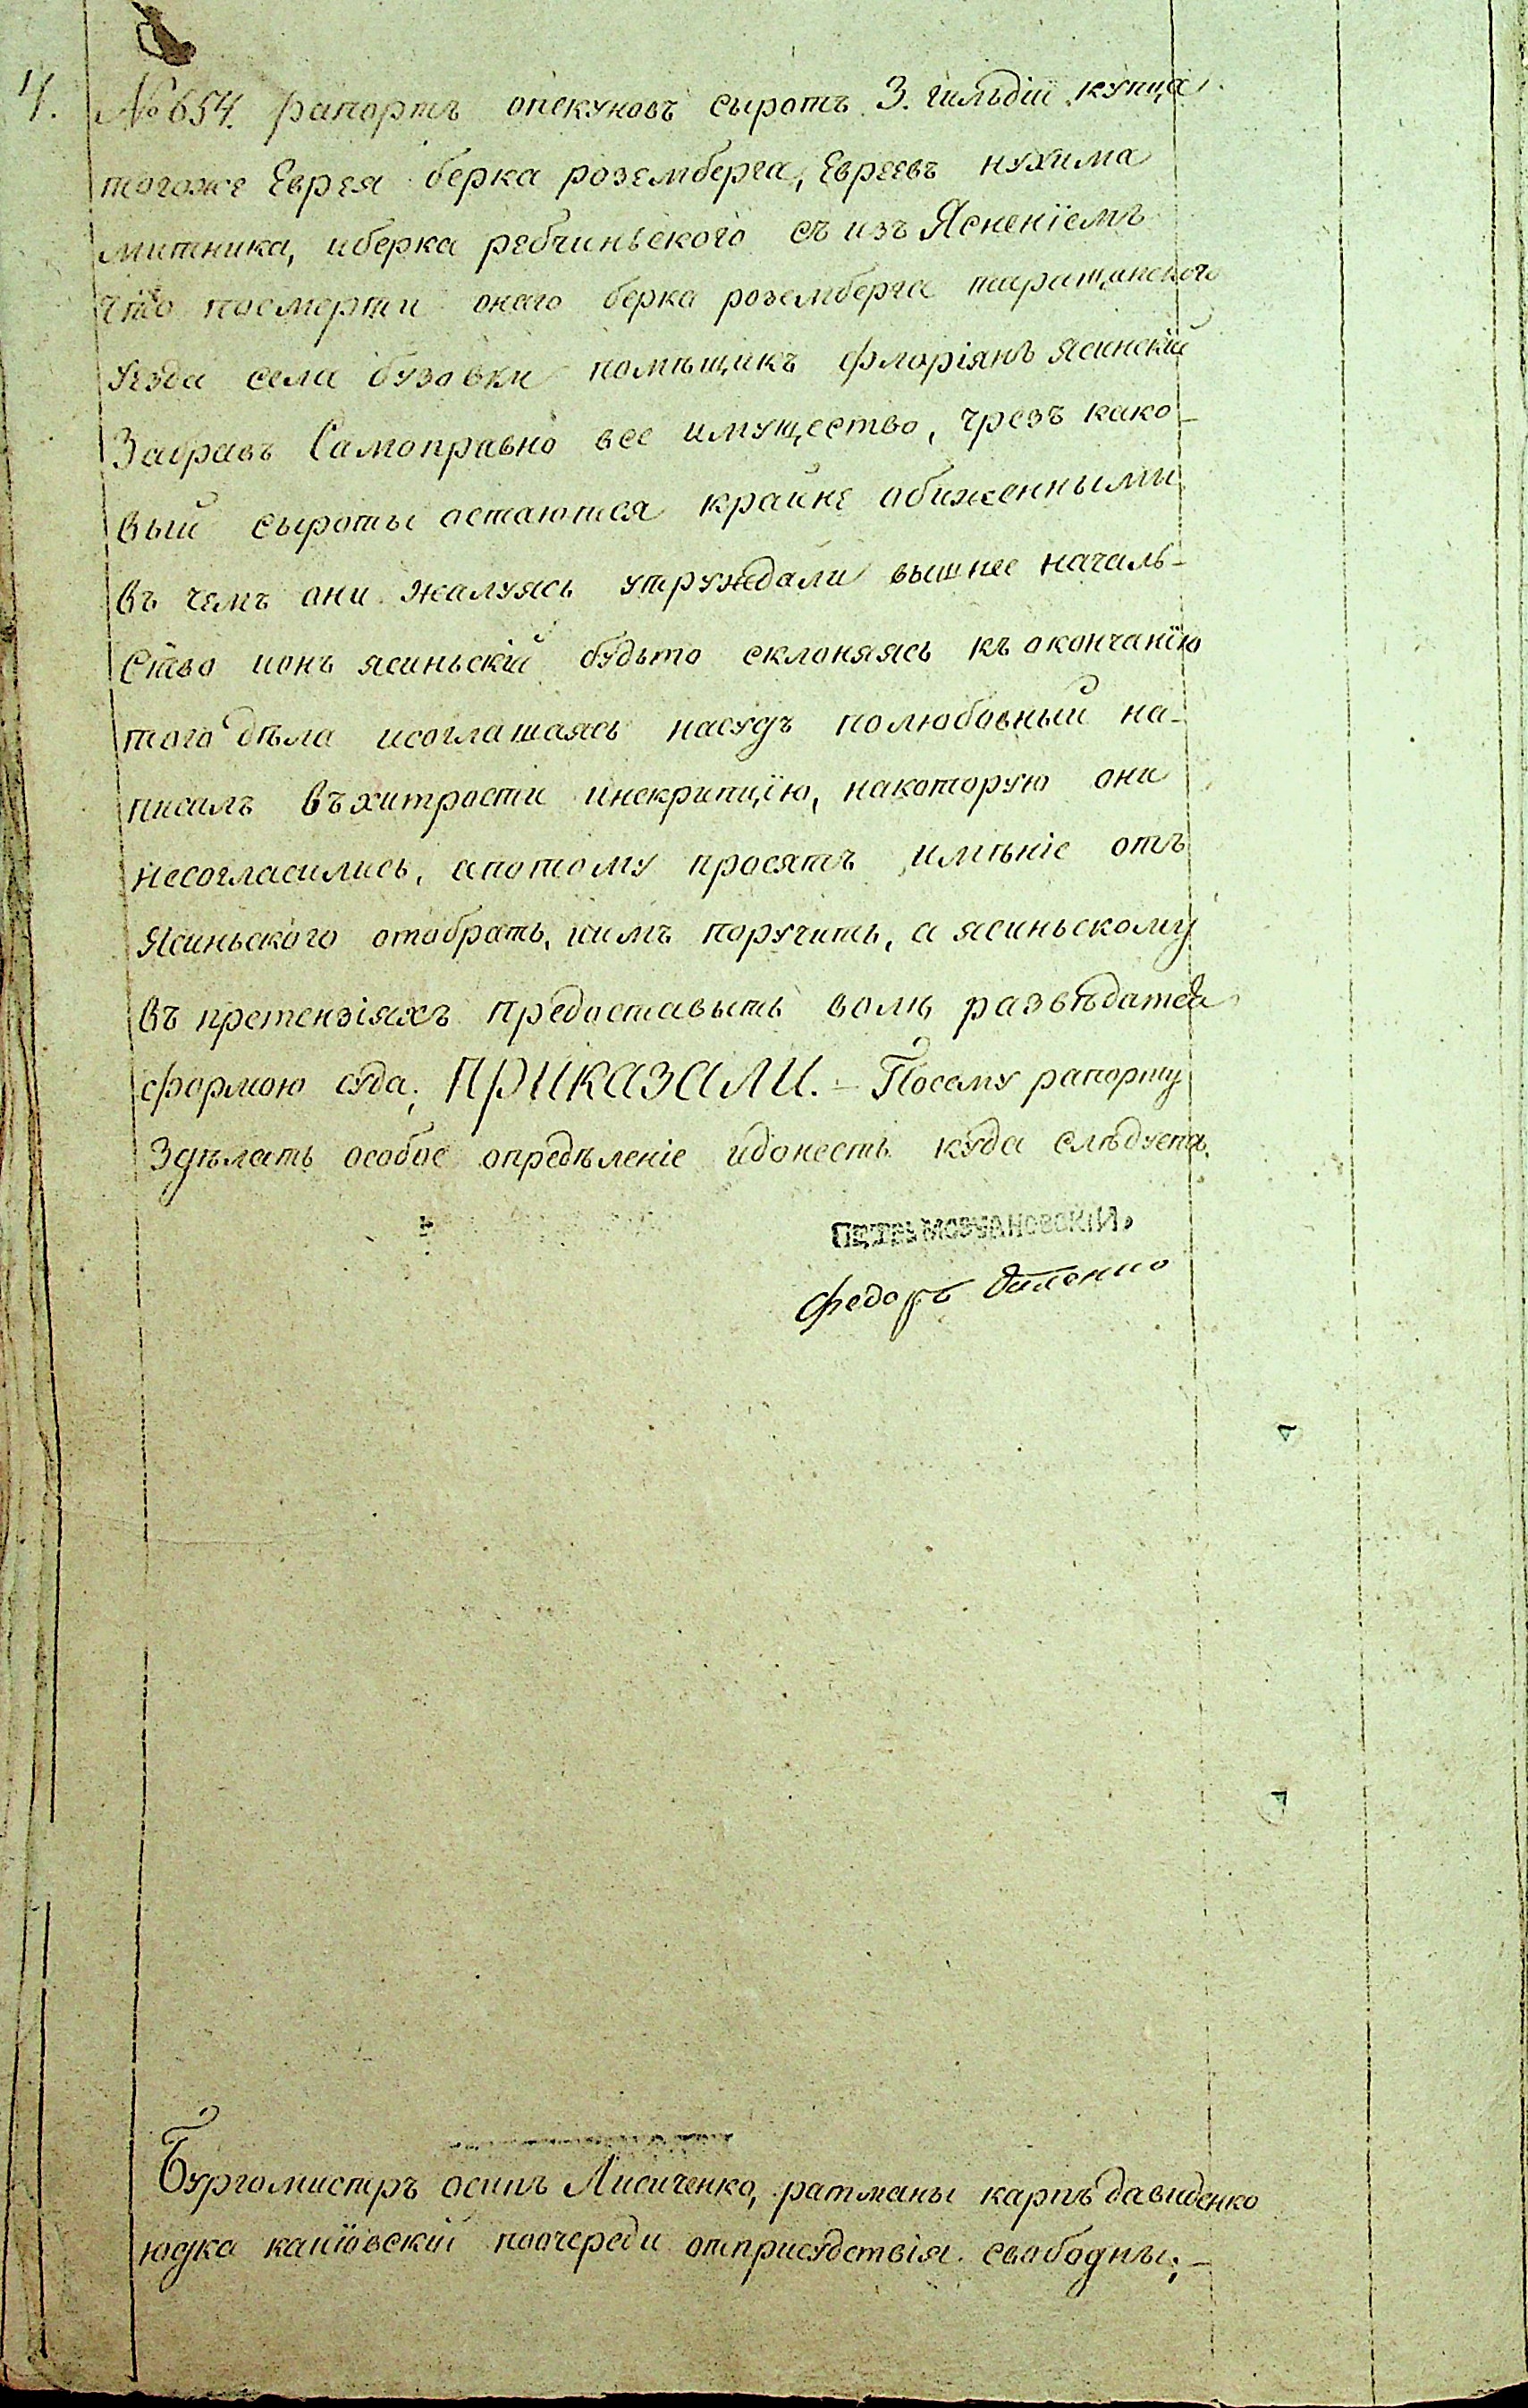 4. №654. рапортъ опекуновъ сыротъ 3. гильдіи купца
тогоже Еврея берка роземберга, Евреевъ нухима
митника, иберка ребчиньского съ изъ Ясненіемъ
что посмерти онаго берка роземберга таращанского
уезда села бузовки помѣщикъ флоріянъ ясинскій
Забравъ Самоправно все имущество, чрезъ како-
вый сыроты остаются крайне обиженными
въ чемъ они жалуясь утруждали вышнее началь-
Ство ионъ ясиньскій будьто склоняясь къ окончанїю
того дѣла исоглашаясь насудъ полюбовный на-
писалъ въхитрости инскрипцїю, накоторую они
несогласились, апотому просятъ имѣніе отъ
Ясиньского отобрать, иимъ поручить, а ясиньскому
въ претензіяхъ предоставыть волю развѣдатся
формою суда; ПРИКАЗАЛИ. – Посему рапорту
Здѣлать особое определеніе идонесть куда слѣдуетъ.
Федоръ
Бургомистръ осипъ Лисиченко, ратманы карпъ давиденко
юдка каніовскій поочереди отприсудствія свободны; –